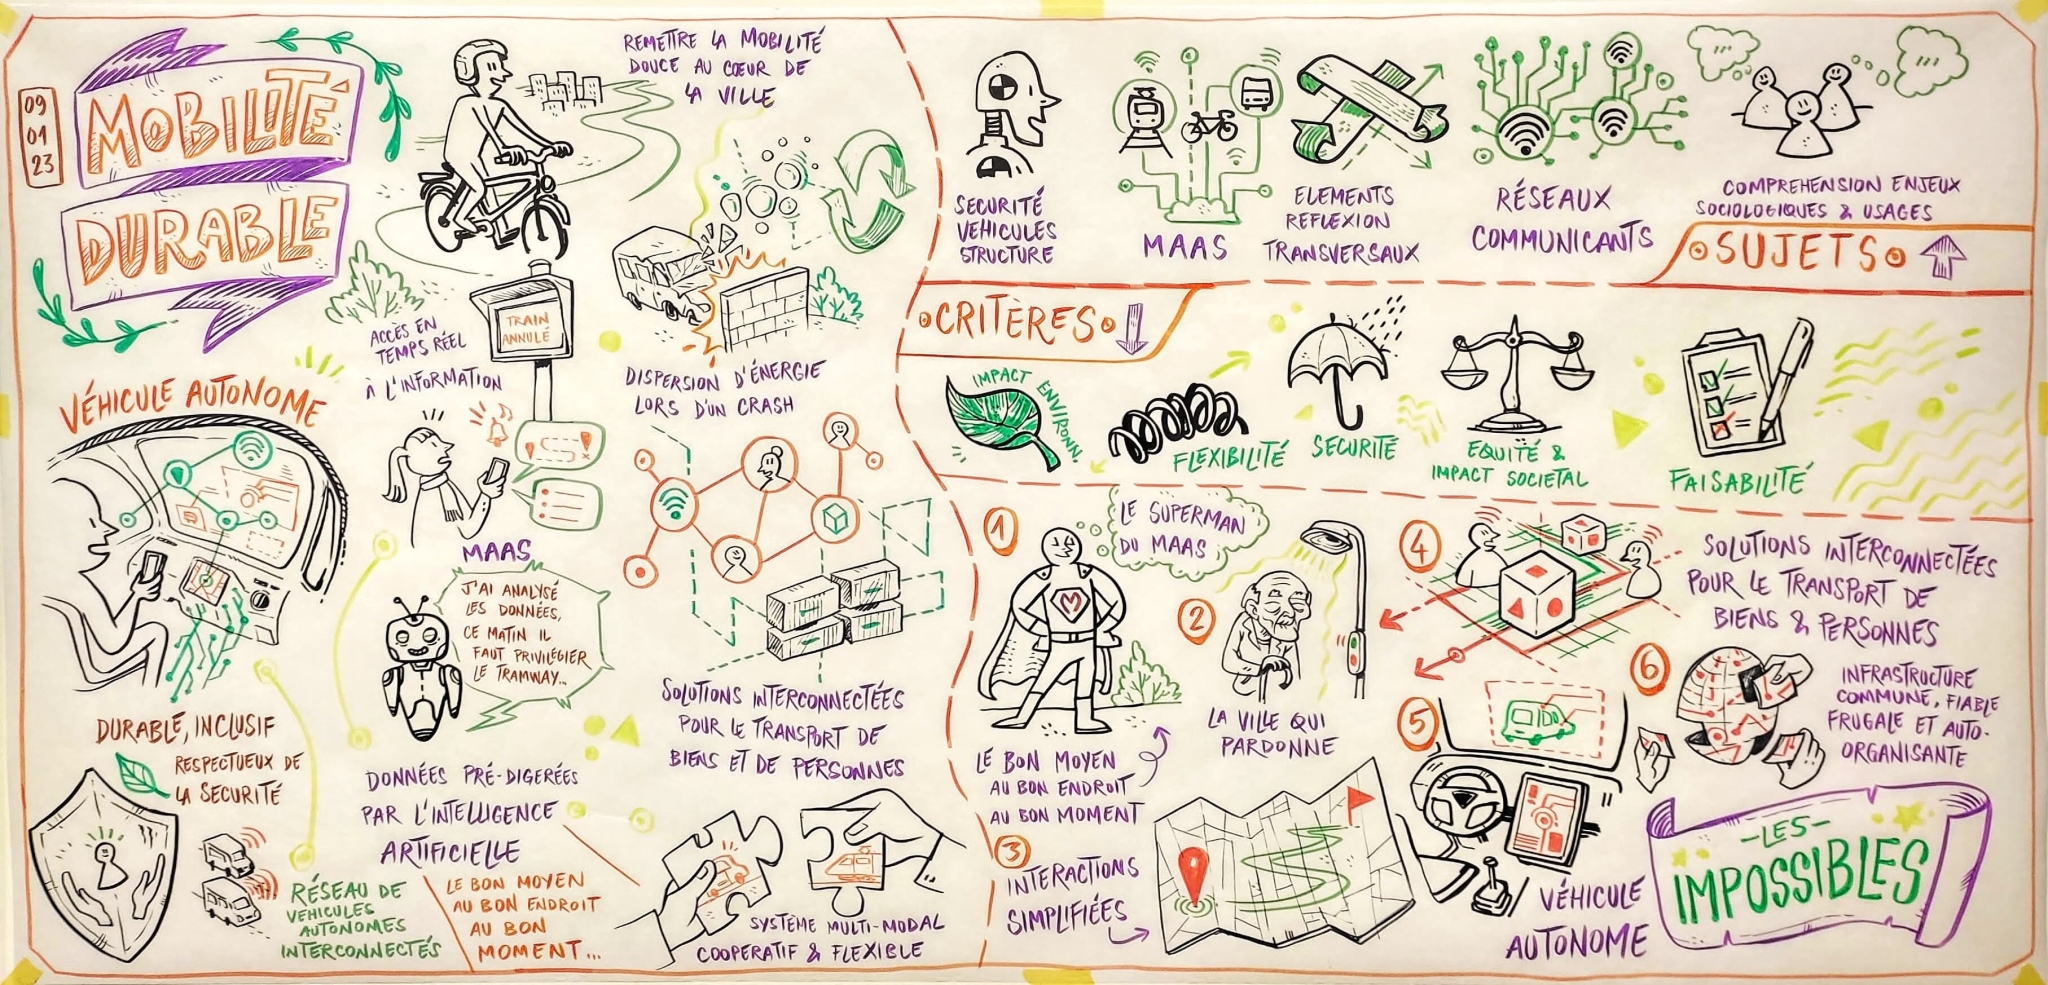 09
01
23
MOBILITÉ
DURABLE
REMETTRE LA MOBILITÉ
DOUCE AU CŒUR DE
LA VILLE
TRAIN
ANNULÉ
ACCÈS EN
TEMPS RÉEL
À L'INFORMATION
DISPERSION D'ÉNERGIE
LORS D'UN CRASH
VÉHICULE AUTONOME
MAAS
J'AI ANALYSÉ
LES DONNÉES,
CE MATIN IL
FAUT PRIVILÉGIER
LE TRAMWAY...
DONNÉES PRÉ-DIGERÉES
PAR L'INTELLIGENCE
ARTIFICIELLE
SOLUTIONS INTERCONNECTÉES
POUR LE TRANSPORT DE
BIENS ET DE PERSONNES
DURABLE, INCLUSIF
RESPECTUEUX DE
LA SECURITÉ
RÉSEAU DE
VEHICULES
AUTONOMES
INTERCONNECTÉS
LE BON MOYEN
AU BON ENDROIT
AU BON
MOMENT...
SYSTÈME MULTI-MODAL
COOPERATIF & FLEXIBLE
SECURITÉ
VEHICULES
STRUCTURE
MAAS
ELEMENTS
REFLEXION
TRANSVERSAUX
RÉSEAUX
COMMUNICANTS
COMPREHENSION ENJEUX
SOCIOLOGIQUES & USAGES
SUJETS
CRITÈRES
IMPACT ENVIRONN.
FLEXIBILITÉ
SECURITÉ
EQUITÉ &
IMPACT SOCIETAL
FAISABILITÉ
1
LE SUPERMAN
DU MAAS
M
LE BON MOYEN
AU BON ENDROIT
AU BON MOMENT
2
LA VILLE QUI
PARDONNE
3
INTERACTIONS
SIMPLIFIÉES
4
SOLUTIONS INTERCONNECTÉES
POUR LE TRANSPORT DE
BIENS & PERSONNES
5
VÉHICULE
AUTONOME
6
INFRASTRUCTURE
COMMUNE, FIABLE
FRUGALE ET AUTO-
ORGANISANTE
-LES-
IMPOSSIBLES